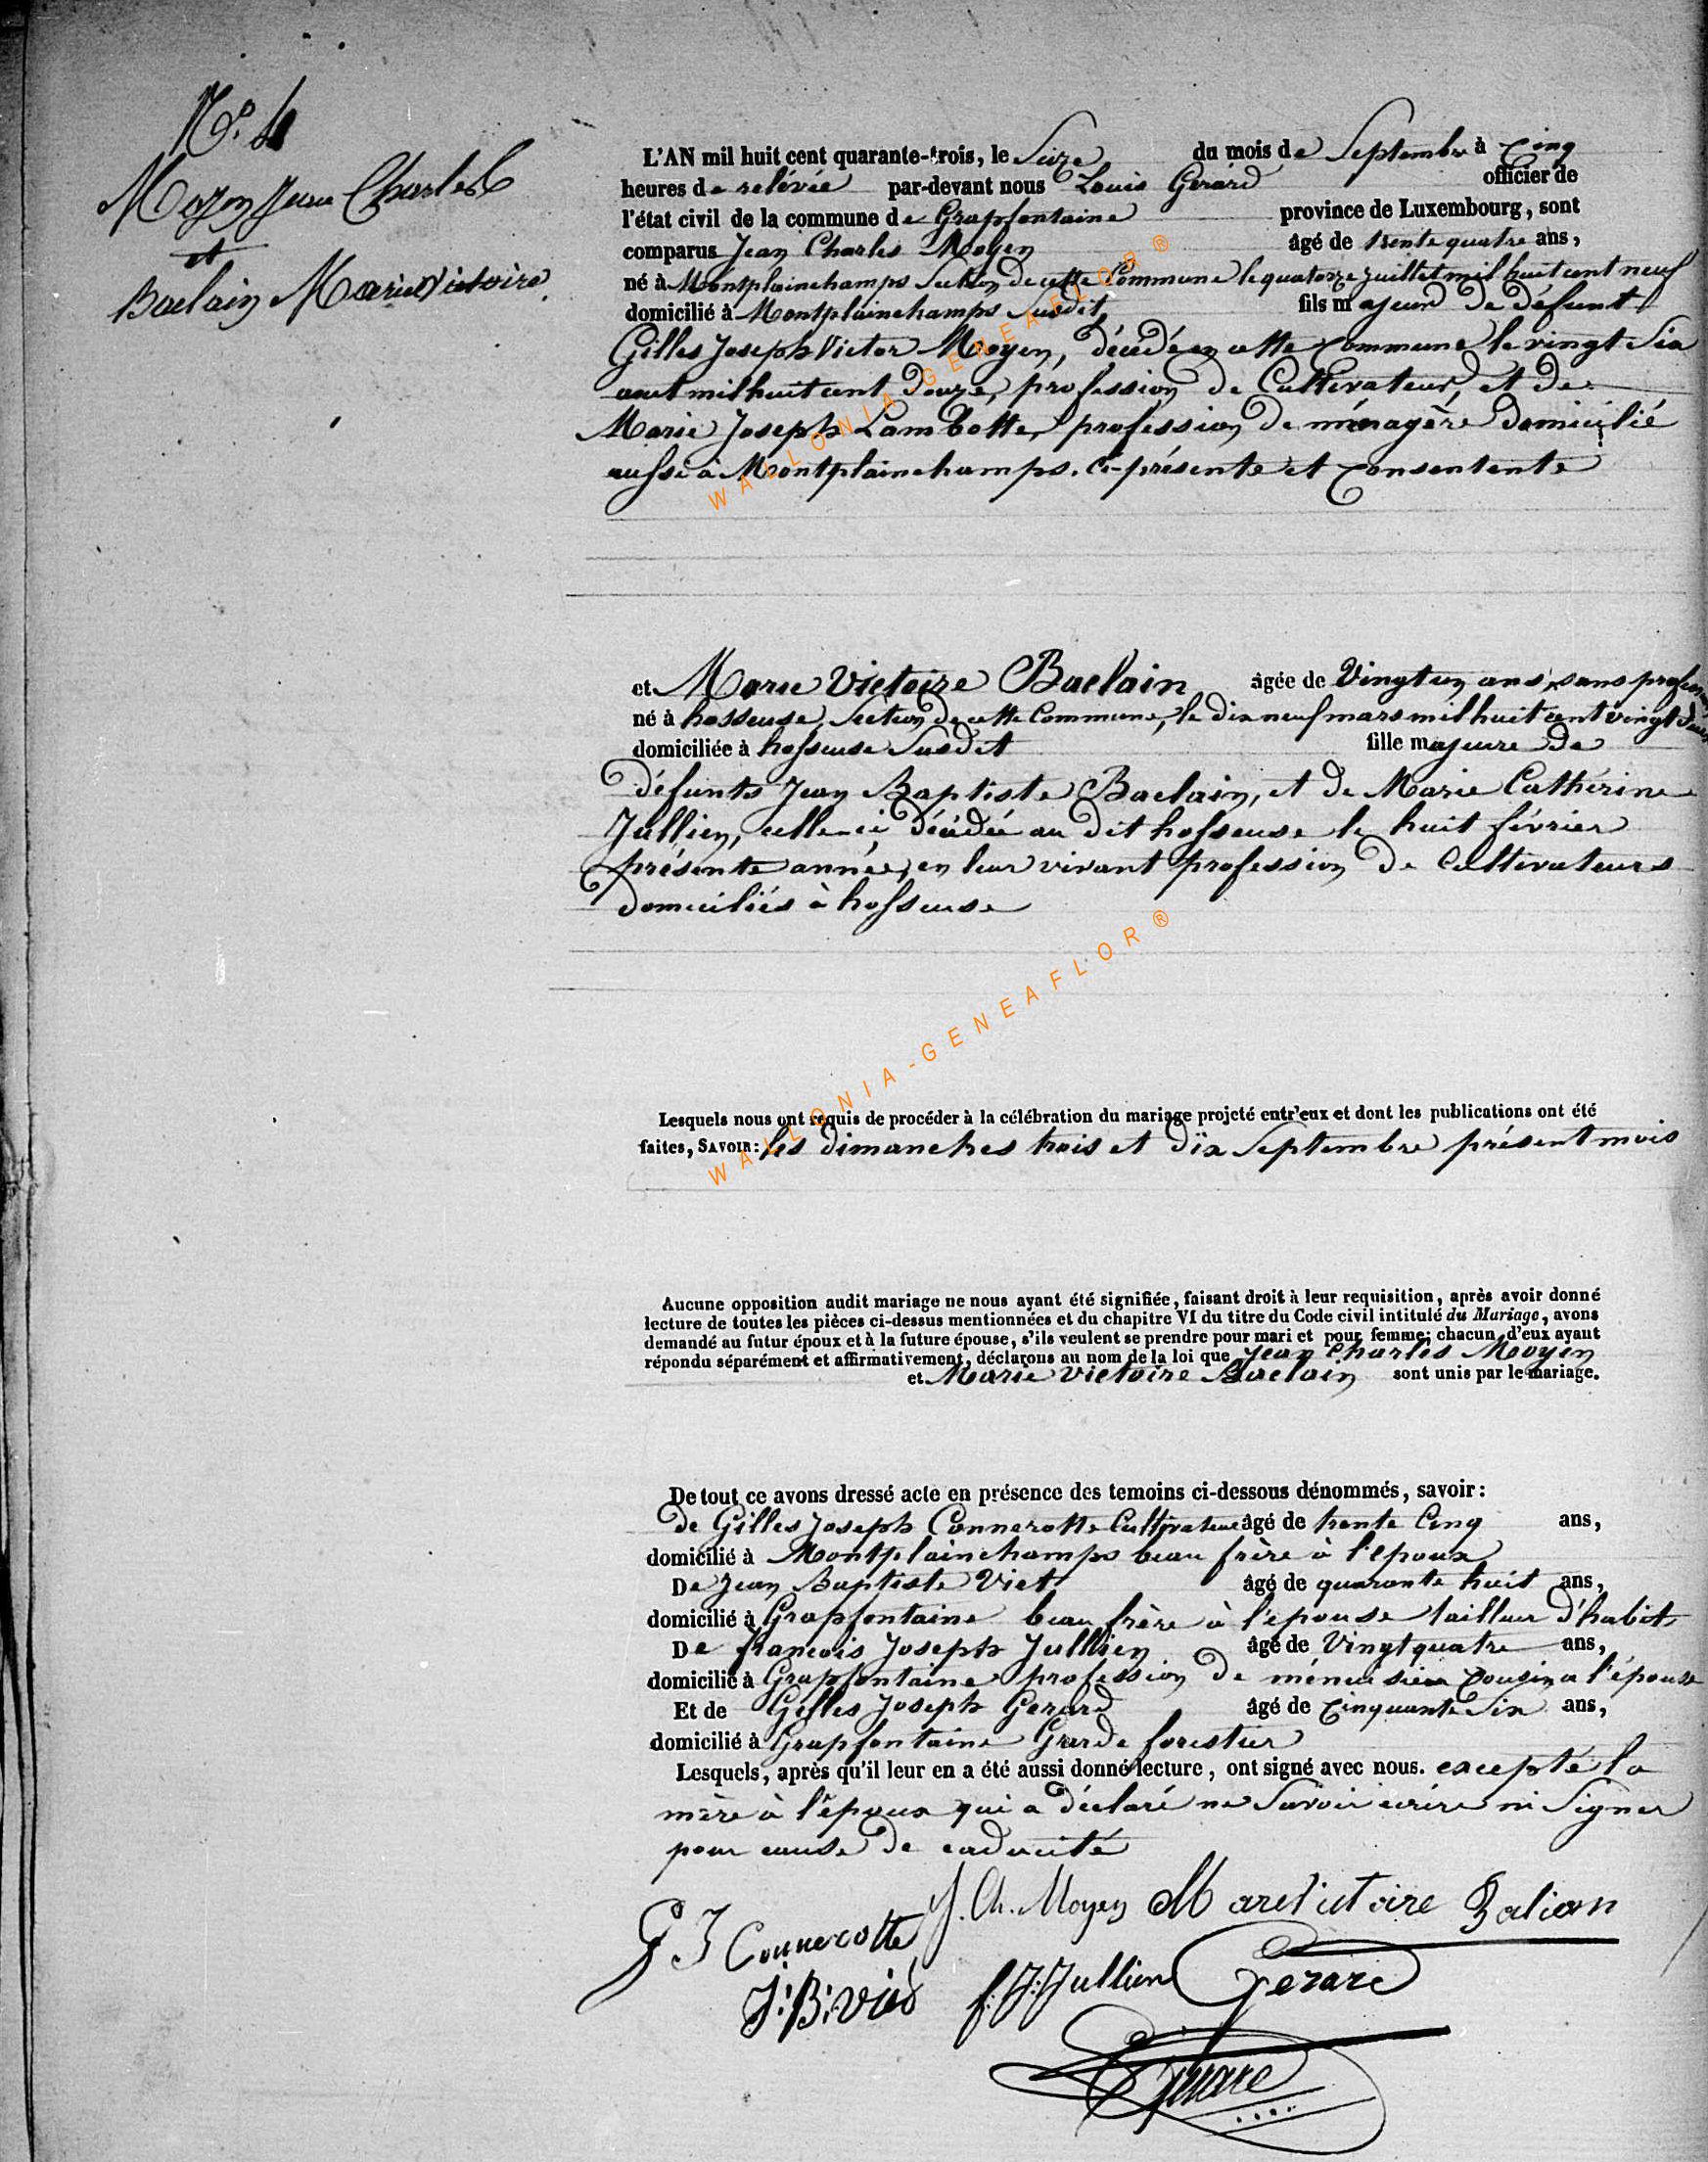 N°. 4
Moyen Jean Charles
et
Baclain Marie Victoire.
L'AN mil huit cent quarante-trois, le Seize du mois de Septembre à Cinq
heures de relévée par-devant nous Louis Gérard officier de
l'état civil de la commune de Grapfontaine province de Luxembourg, sont
comparus Jean Charles Moyen âgé de trente quatre ans,
né à Montplainchamps Section de cette Commune le quatorze juillet mil huit cent neuf
domicilié à Montplainchamps Susdit, fils majeur de défunt
Gilles Joseph Victor Moyen, décédé en cette Commune le vingt Six
aout mil huit cent douze, profession de Cultivateur, et de
Marie Joseph Lambotte, profession de ménagère domicilié
aussi à Montplainchamps. Ci-présente et Consentente
et Marie Victoire Baclain âgée de Vingt un ans, sans profession
né à hosseuse, Section de cette Commune, le dix neuf mars mil huit cent vingt deux
domiciliée à hosseuse Susdit fille majeure de
défunts Jean Baptiste Baclain, et de Marie Cathérine
Jullien, celle-ci décédée au dit hosseuse le huit février
présente année, en leur vivant profession de Cultivateurs
domiciliés à hosseuse
Lesquels nous ont requis de procéder à la célébration du mariage projeté entr'eux et dont les publications ont été
faites, SAVOIR: les dimanches trois et dix Septembre présent mois
Aucune opposition audit mariage ne nous ayant été signifiée, faisant droit à leur requisition, après avoir donné
lecture de toutes les pièces ci-dessus mentionnées et du chapitre VI du titre du Code civil intitulé du Mariage, avons
demandé au futur époux et à la future épouse, s'ils veulent se prendre pour mari et pour femme; chacun d'eux ayant
répondu séparément et affirmativement, déclarons au nom de la loi que Jean Charles Moyen
et Marie Victoire Baclain sont unis par le mariage.
De tout ce avons dressé acte en présence des temoins ci-dessous dénommés, savoir:
de Gilles Joseph Connerotte Cultivateur âgé de trente Cinq ans,
domicilié à Montplainchamps beau frère à l'époux
De Jean Baptiste Viet âgé de quarante huit ans,
domicilié à Grapfontaine beau frère à l'épouse tailleur d'habits
De françois Joseph Jullien âgé de Vingt quatre ans,
domicilié à Grapfontaine profession de ménuisier Cousin a l'épouse
Et de Gilles Joseph Gerard âgé de Cinquante Six ans,
domicilié à Grapfontaine Garde forestier
Lesquels, après qu'il leur en a été aussi donné lecture, ont signé avec nous. excepté la
mère à l'époux qui a déclaré ne Savoir écrire ni Signer
pour cause de caducité
J. Ch. Moyen Marie Victoire Balian
G J Connerotte
J: B: Vied f. J. Jullien Gerard
Gérard
WALLONIA-GENEAFLOR®
WALLONIA-GENEAFLOR®